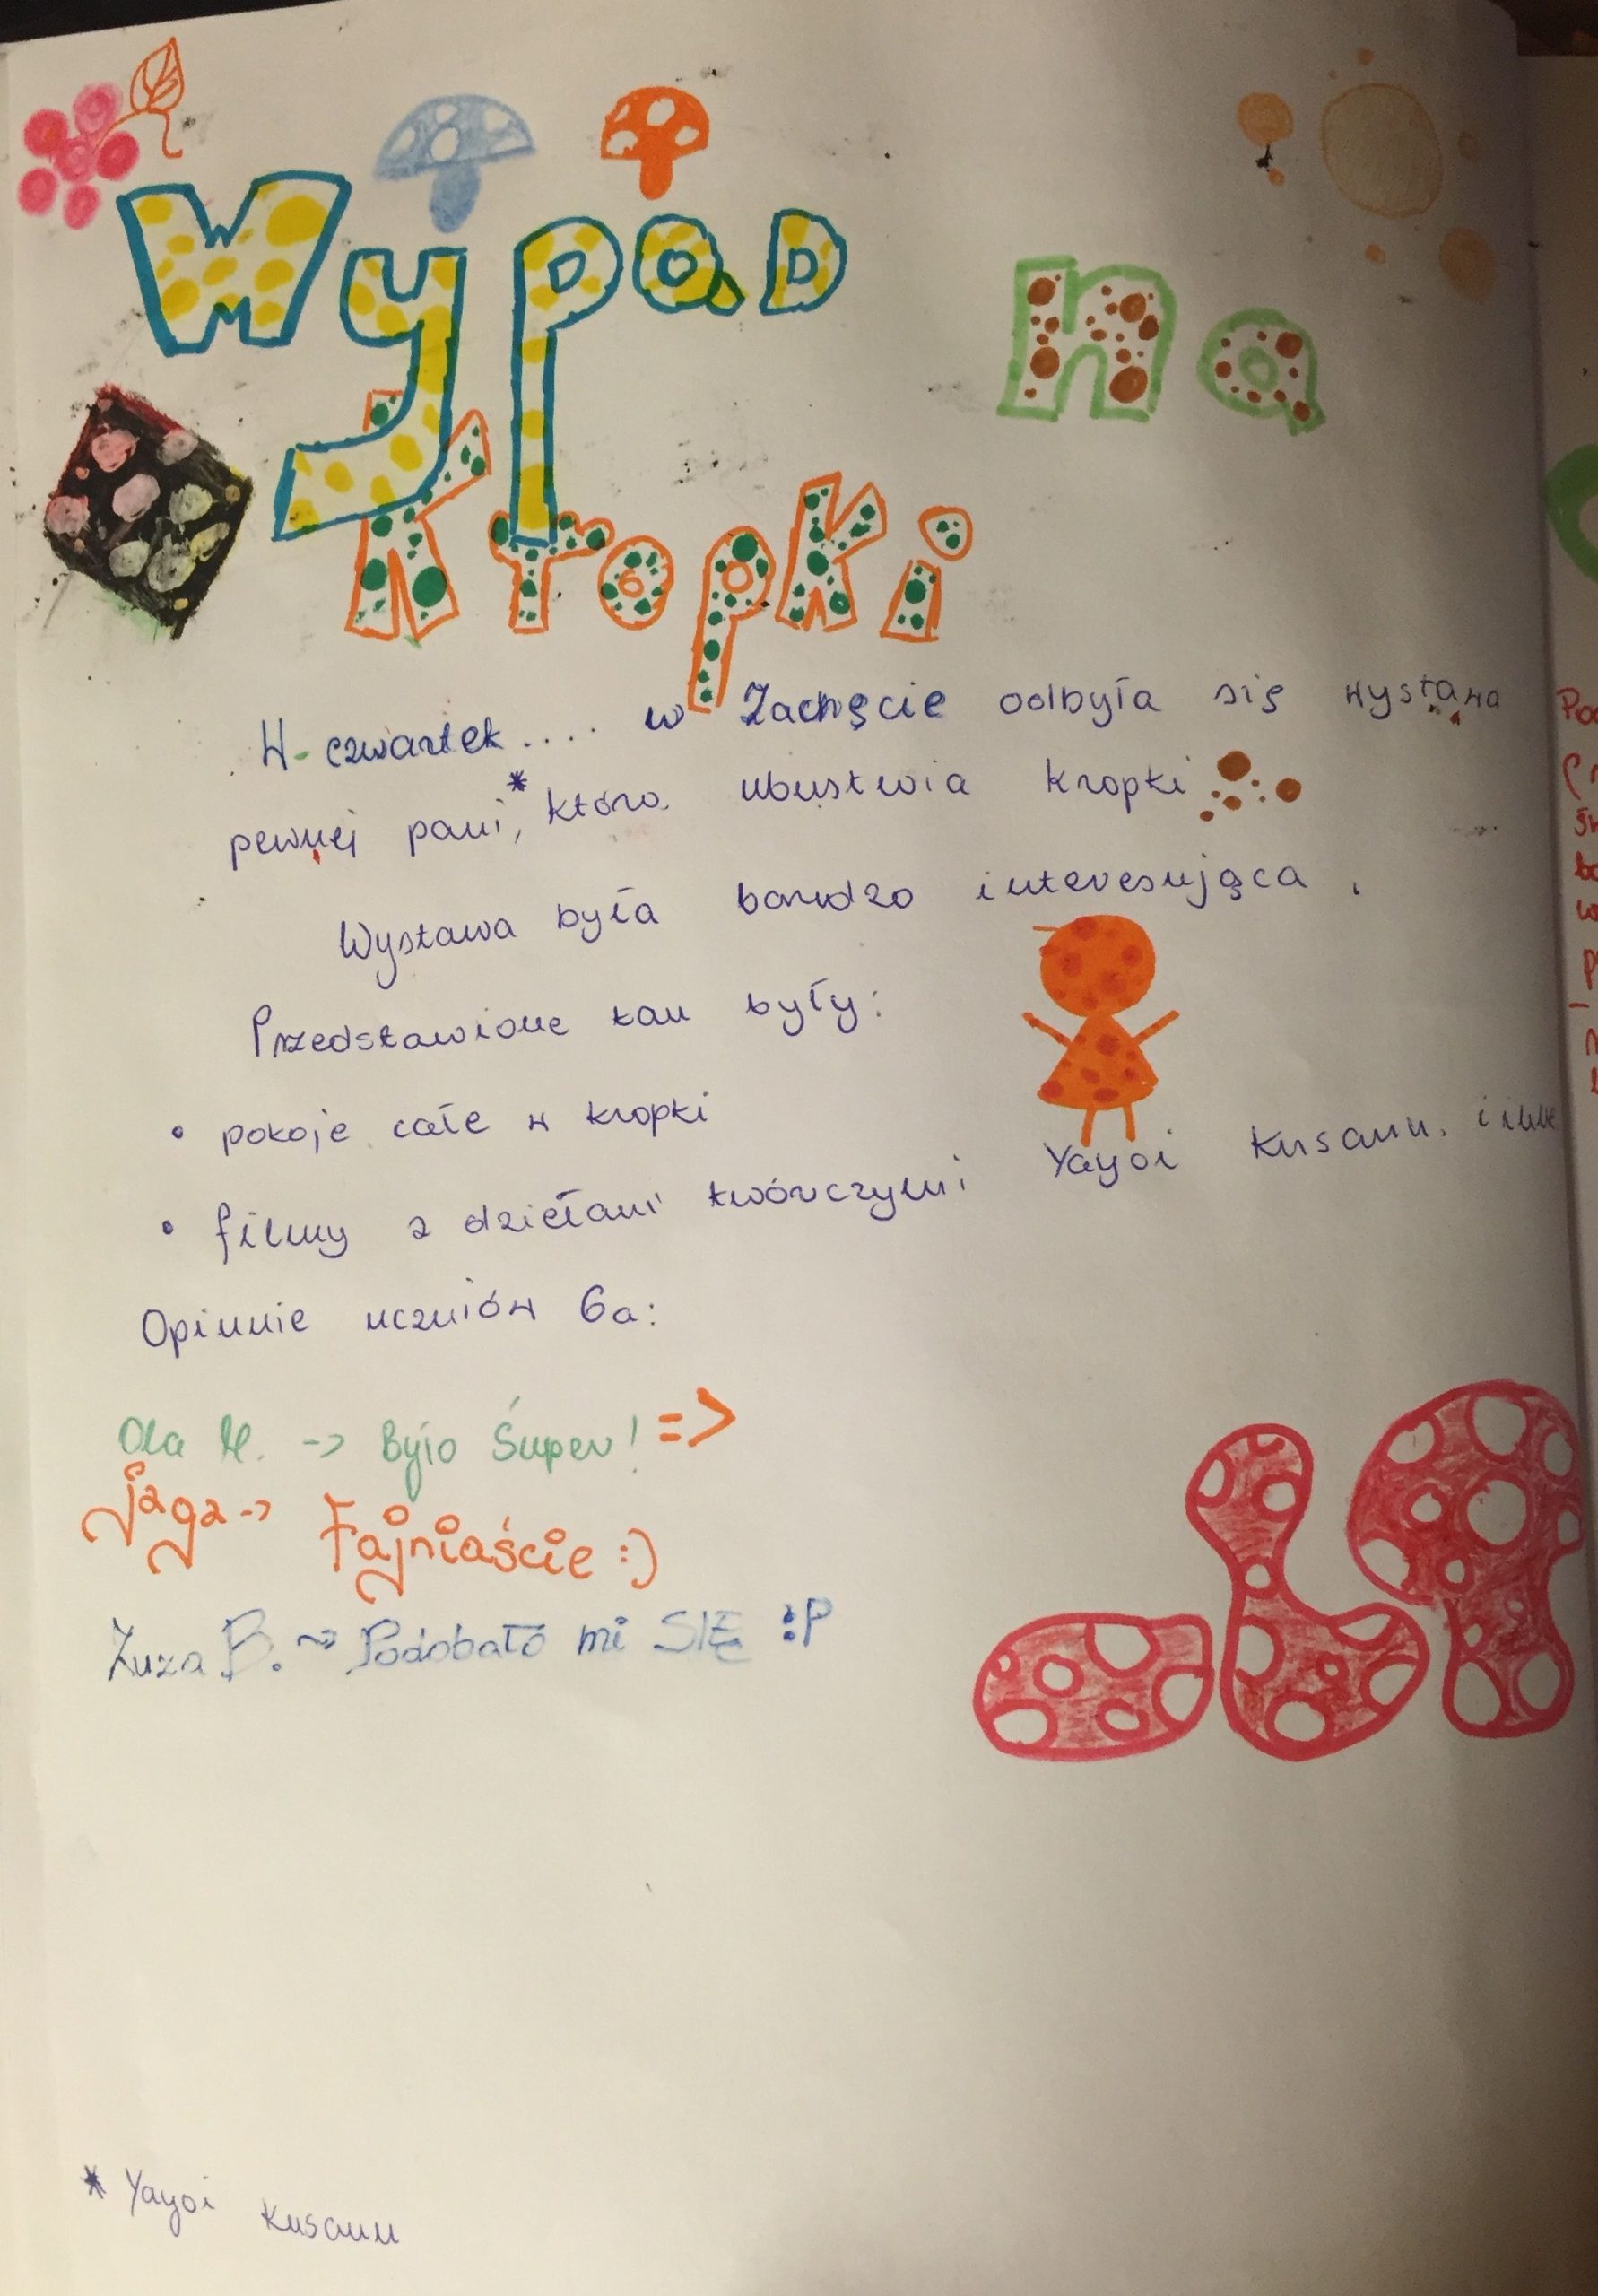 Wypad na
kropki
W czwartek.... w Zachęcie odbyła się wystawa
pewnej pani,* która ubustwia kropki
Wystawa była bardzo interesująca.
Przedstawione tam były:
• pokoje całe w kropki
• filmy z dziełami twórczymi Yayoi Kusamu. i inne
Opinnie uczniów 6a:
Ola M. -> Było Super! =>
Jaga -> Fajniaście :)
Zuza B. ~> Podobało mi SIĘ :P
* Yayoi Kusamu